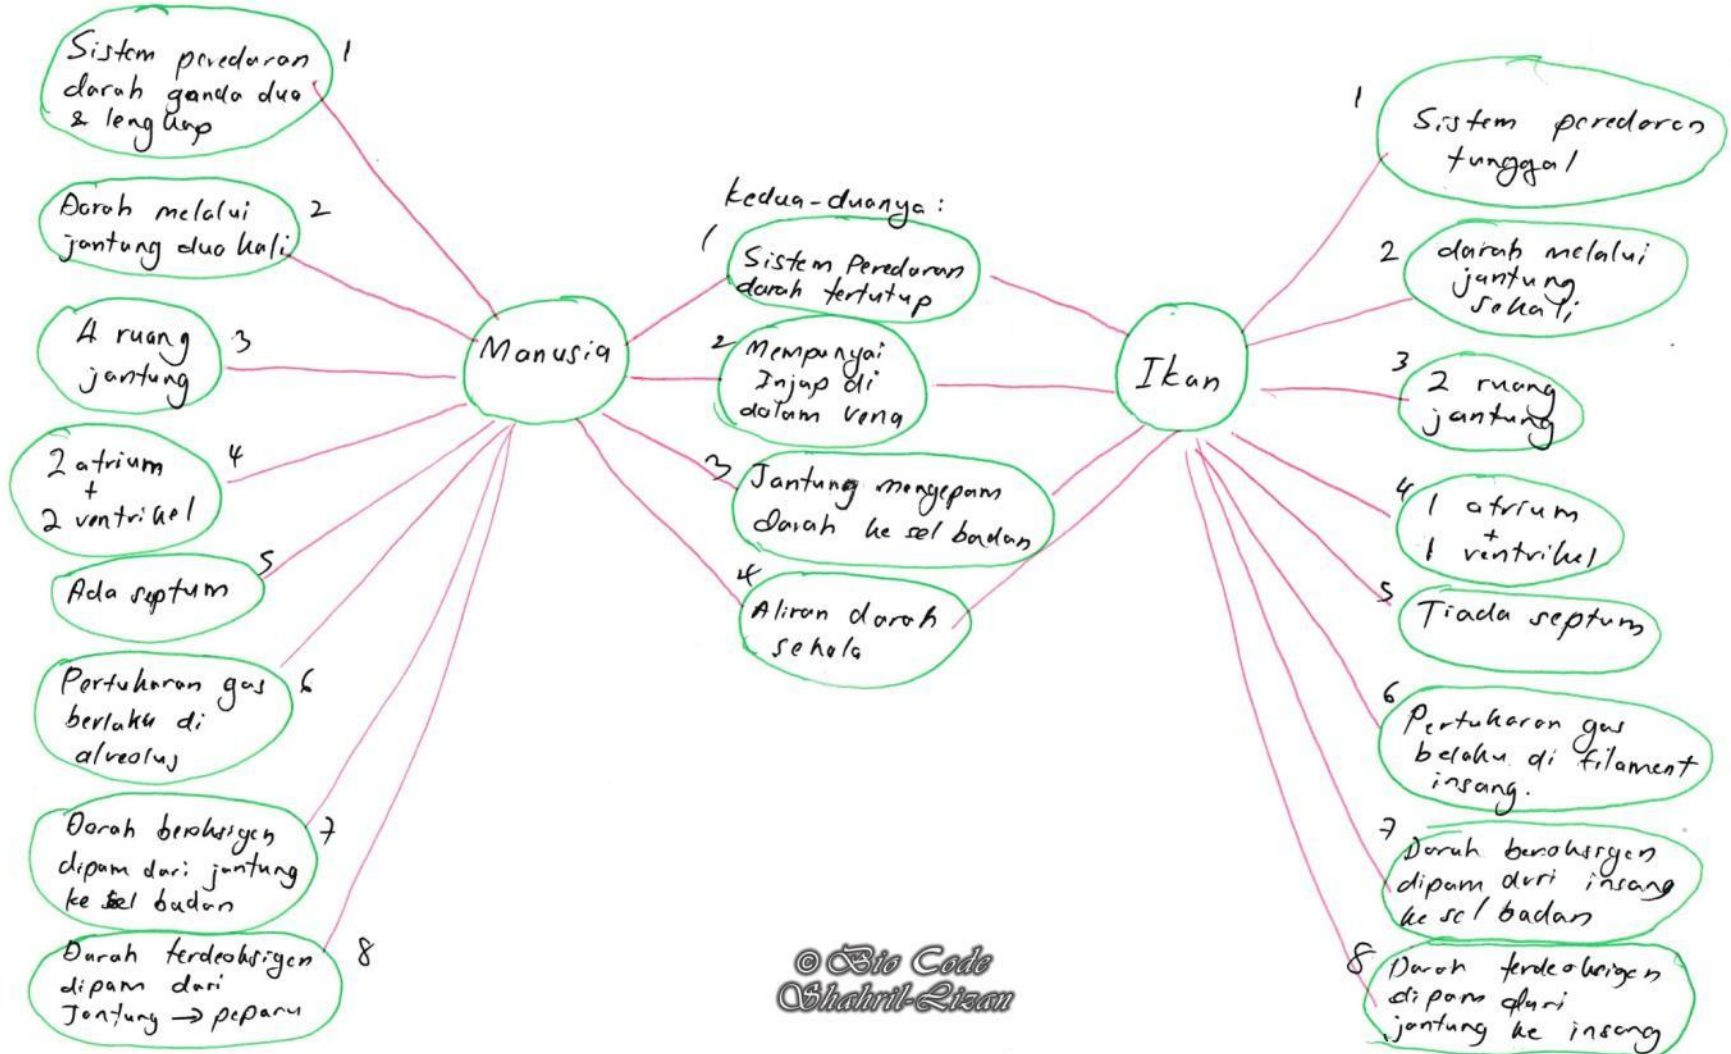 Sistem peredaran 1
darah ganda dua
& lengkap
Darah melalui 2
jantung dua kali
4 ruang 3
jantung
2 atrium 4
+
2 ventrikel
Ada septum 5
Pertukaran gas 6
berlaku di
alveolus
Darah beroksigen 7
dipam dari jantung
ke sel badan
Darah terdeoksigen 8
dipam dari
Jantung → peparu
Manusia
kedua-duanya:
1 Sistem Peredaran
darah tertutup
2 Mempunyai
Injap di
dalam vena
3 Jantung mengepam
darah ke sel badan
4 Aliran darah
sehala
Ikan
1 Sistem peredaran
tunggal
2 darah melalui
jantung
sekali
3 2 ruang
jantung
4 1 atrium
+
1 ventrikel
5 Tiada septum
6 Pertukaran gas
belaku di filament
insang.
7 Darah beroksigen
dipam dari insang
ke sel badan
8 Darah terdeoksigen
dipam dari
jantung ke insang
© Bio Code
Shahril-Lizan